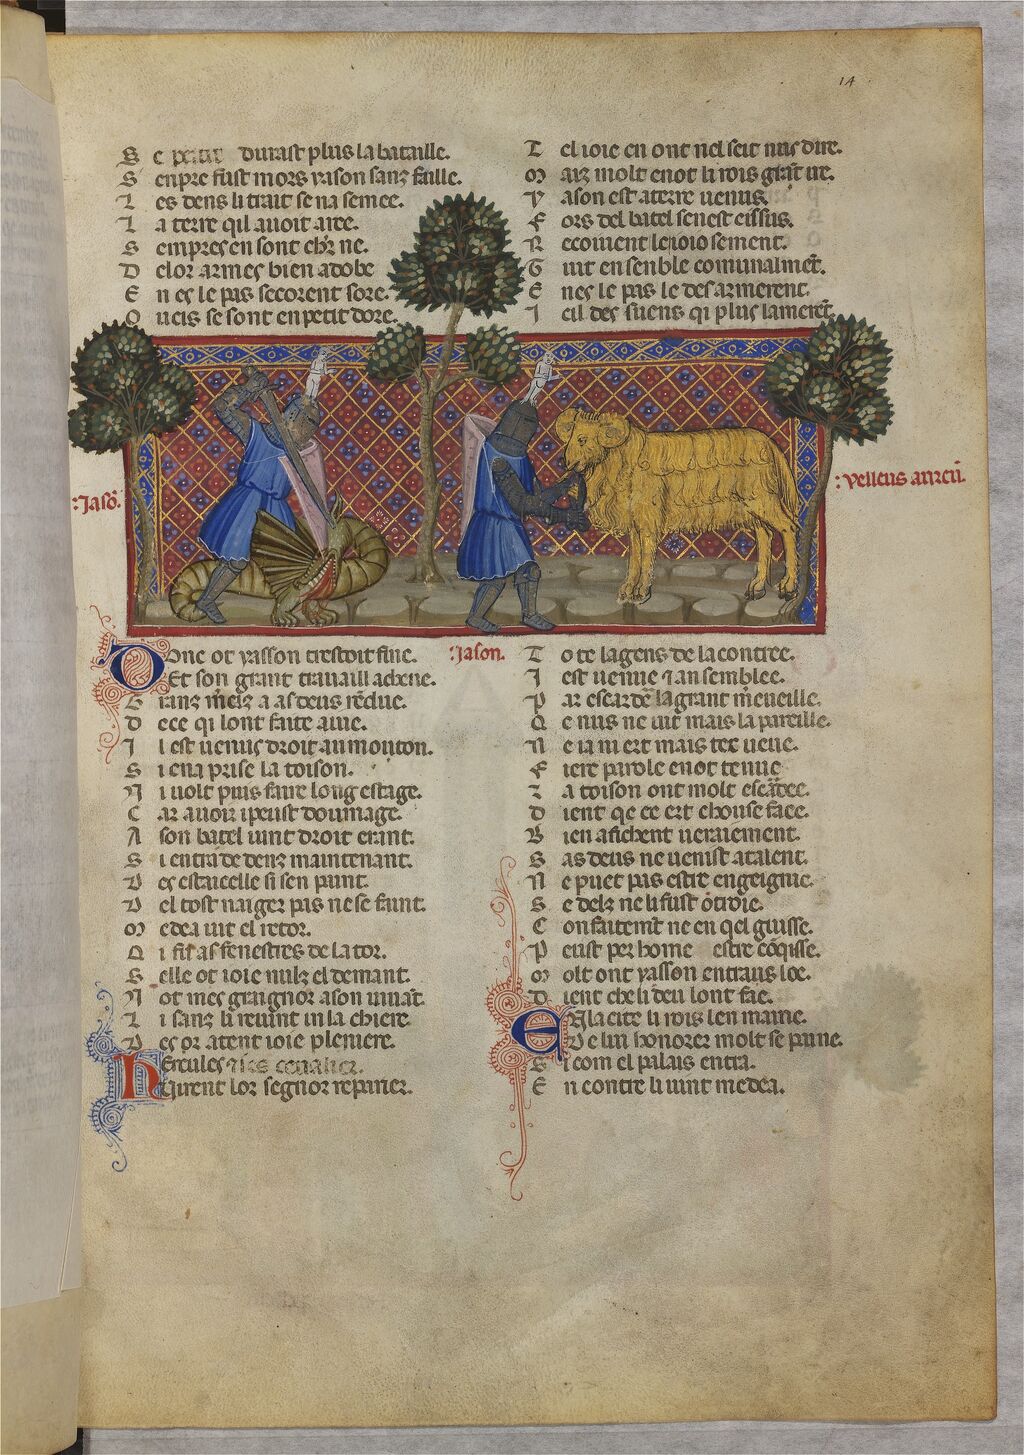 14
S e petit durast plus la bataille.
S enpre fust mors yason sanz faille.
L es dens li trait se na semee.
L a terre qil auoit aree.
S empres en sont chr ne.
D elor armes bien adobe
E n es le pas secorent sore.
O ucis se sont en petit dore.
T el ioie en ont nel seit nus dire.
M ais molt enot li rois grant ire.
Y ason est aterre uenus.
F ors del batel senest eissus.
R ecoiuent le ioiosement.
T uit ensenble comunalmet.
E nes le pas le desarmerent.
I cil des suens qi plus lameret.
:Jaso:
:vellus aureu
:Jason.
D onc ot yasson trestoit fine.
Et son grant trauaill acheue.
G ranz melz a as deus redue.
D ece qi lont faite aiue.
I l est uenus droit au mouton.
S i ena prise la toison.
N i uolt puis faire long estage.
C ar auoir i peust doumage.
A son batel uint droit erant.
S i entra de denz maintenant.
D es estaucelle si sen punt.
D el tost naiger pas ne se funt.
M edea uit el retor.
Q i fu as fenestres de la tor.
S elle ot ioie nulz el demant.
N ot mes graignor a son uiuat.
L i sanz li reuint in la chiere.
D es or atent ioie pleniere.
H ercules
Qurent lor segnor repairier.
T ote la gens de la contree.
I est uenue 7 an semblee.
P ar escarde la grant merueille.
Q e nus ne uit mais la pareille.
N e ia ni ert mais tex ueue.
F iere parole enot tenue
L a toison ont molt escardee.
D ient qe ce ert chouse faee.
B ien afichent ueraiement.
S as deus ne uenist atalent.
N e puet pas estre engeignie.
S e dels ne li fust otroie.
C on faitemt ne en qel guisse.
P eust per home estre coqisse.
M olt ont yasson entraus loe.
D ient che li deu lont fae.
E n la cite li rois len maine.
De lui honorer molt se paine.
S i com el palais entra.
E n contre li uint medea.